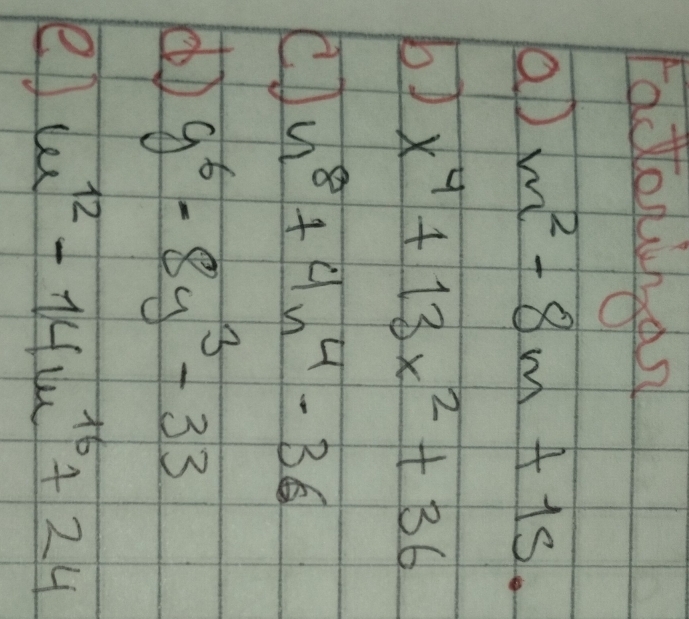 Factorizar
a) m² - 8m + 15.
b) x⁴ + 13x² + 36
c) n⁸ + 4n⁴ - 36
d) y⁶ - 8y³ - 33
e) m¹² - 14m¹⁶ + 24